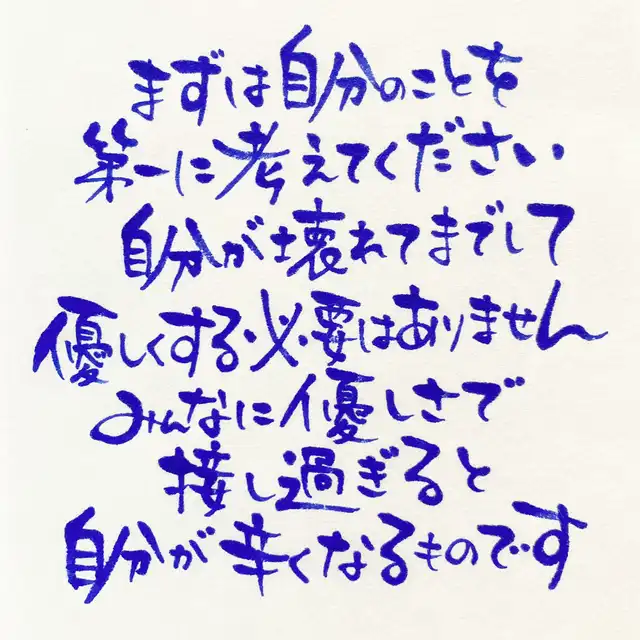 まずは自分のことを
第一に考えてください
自分が壊れてまでして
優しくする必要はありません
みんなに優しさで
接し過ぎると
自分が辛くなるものです